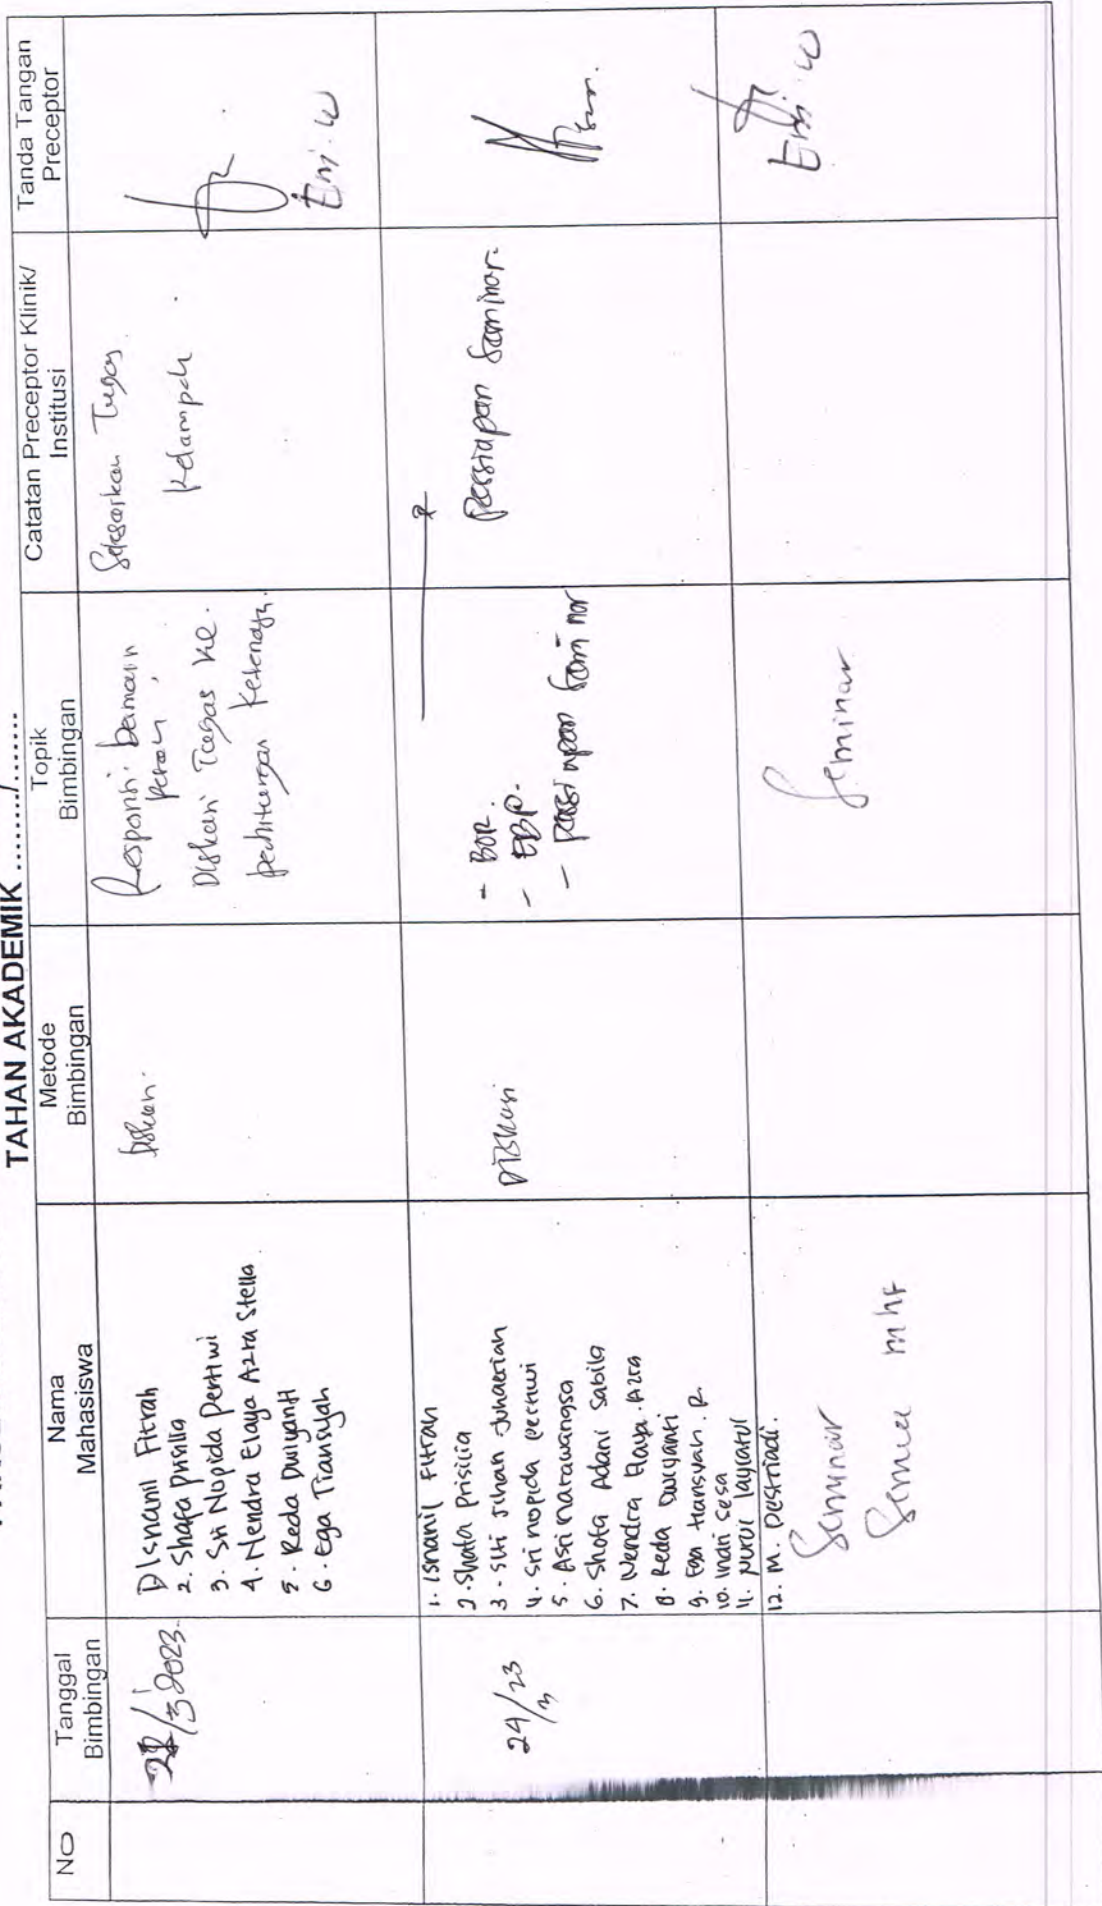 TAHAN AKADEMIK ......../.......
NO
Tanggal
Bimbingan
Nama
Mahasiswa
Metode
Bimbingan
Topik
Bimbingan
Catatan Preceptor Klinik/
Institusi
Tanda Tangan
Preceptor
/3 2023.
1) Isnanil Fitrah
2. Shafa Prisilla
3. Sri Nopida Pertiwi
4. Nendra Elaya Azra Stella
5. Reda Dwiyanti
6. Ega Tiansyah
Diskusi.
Responsi bermain
peran,
Diskusi Tugas ke.
perhitungan Ketenaga.
Selesaikan Tugas
Kelompok.
Erni. W
24/23
3
1. Isnanil Fitrah
2. Shafa Prisilia
3. Siti Jihan Juhaerian
4. Sri nopida pertiwi
5. Asri naratawangsa
6. Shofa Adani Sabila
7. Nendra Elaya.Azra
8. Reda Dwiyanti
9. Ega tiansyah.R
10. Indri sesa
11. Nurul
12. M. Pestriadi.
Diskusi
- BOR.
- EBP.
- Persiapan Seminar
Persiapan Seminar.
Seminar
Semua mhs
Seminar
Erni. W